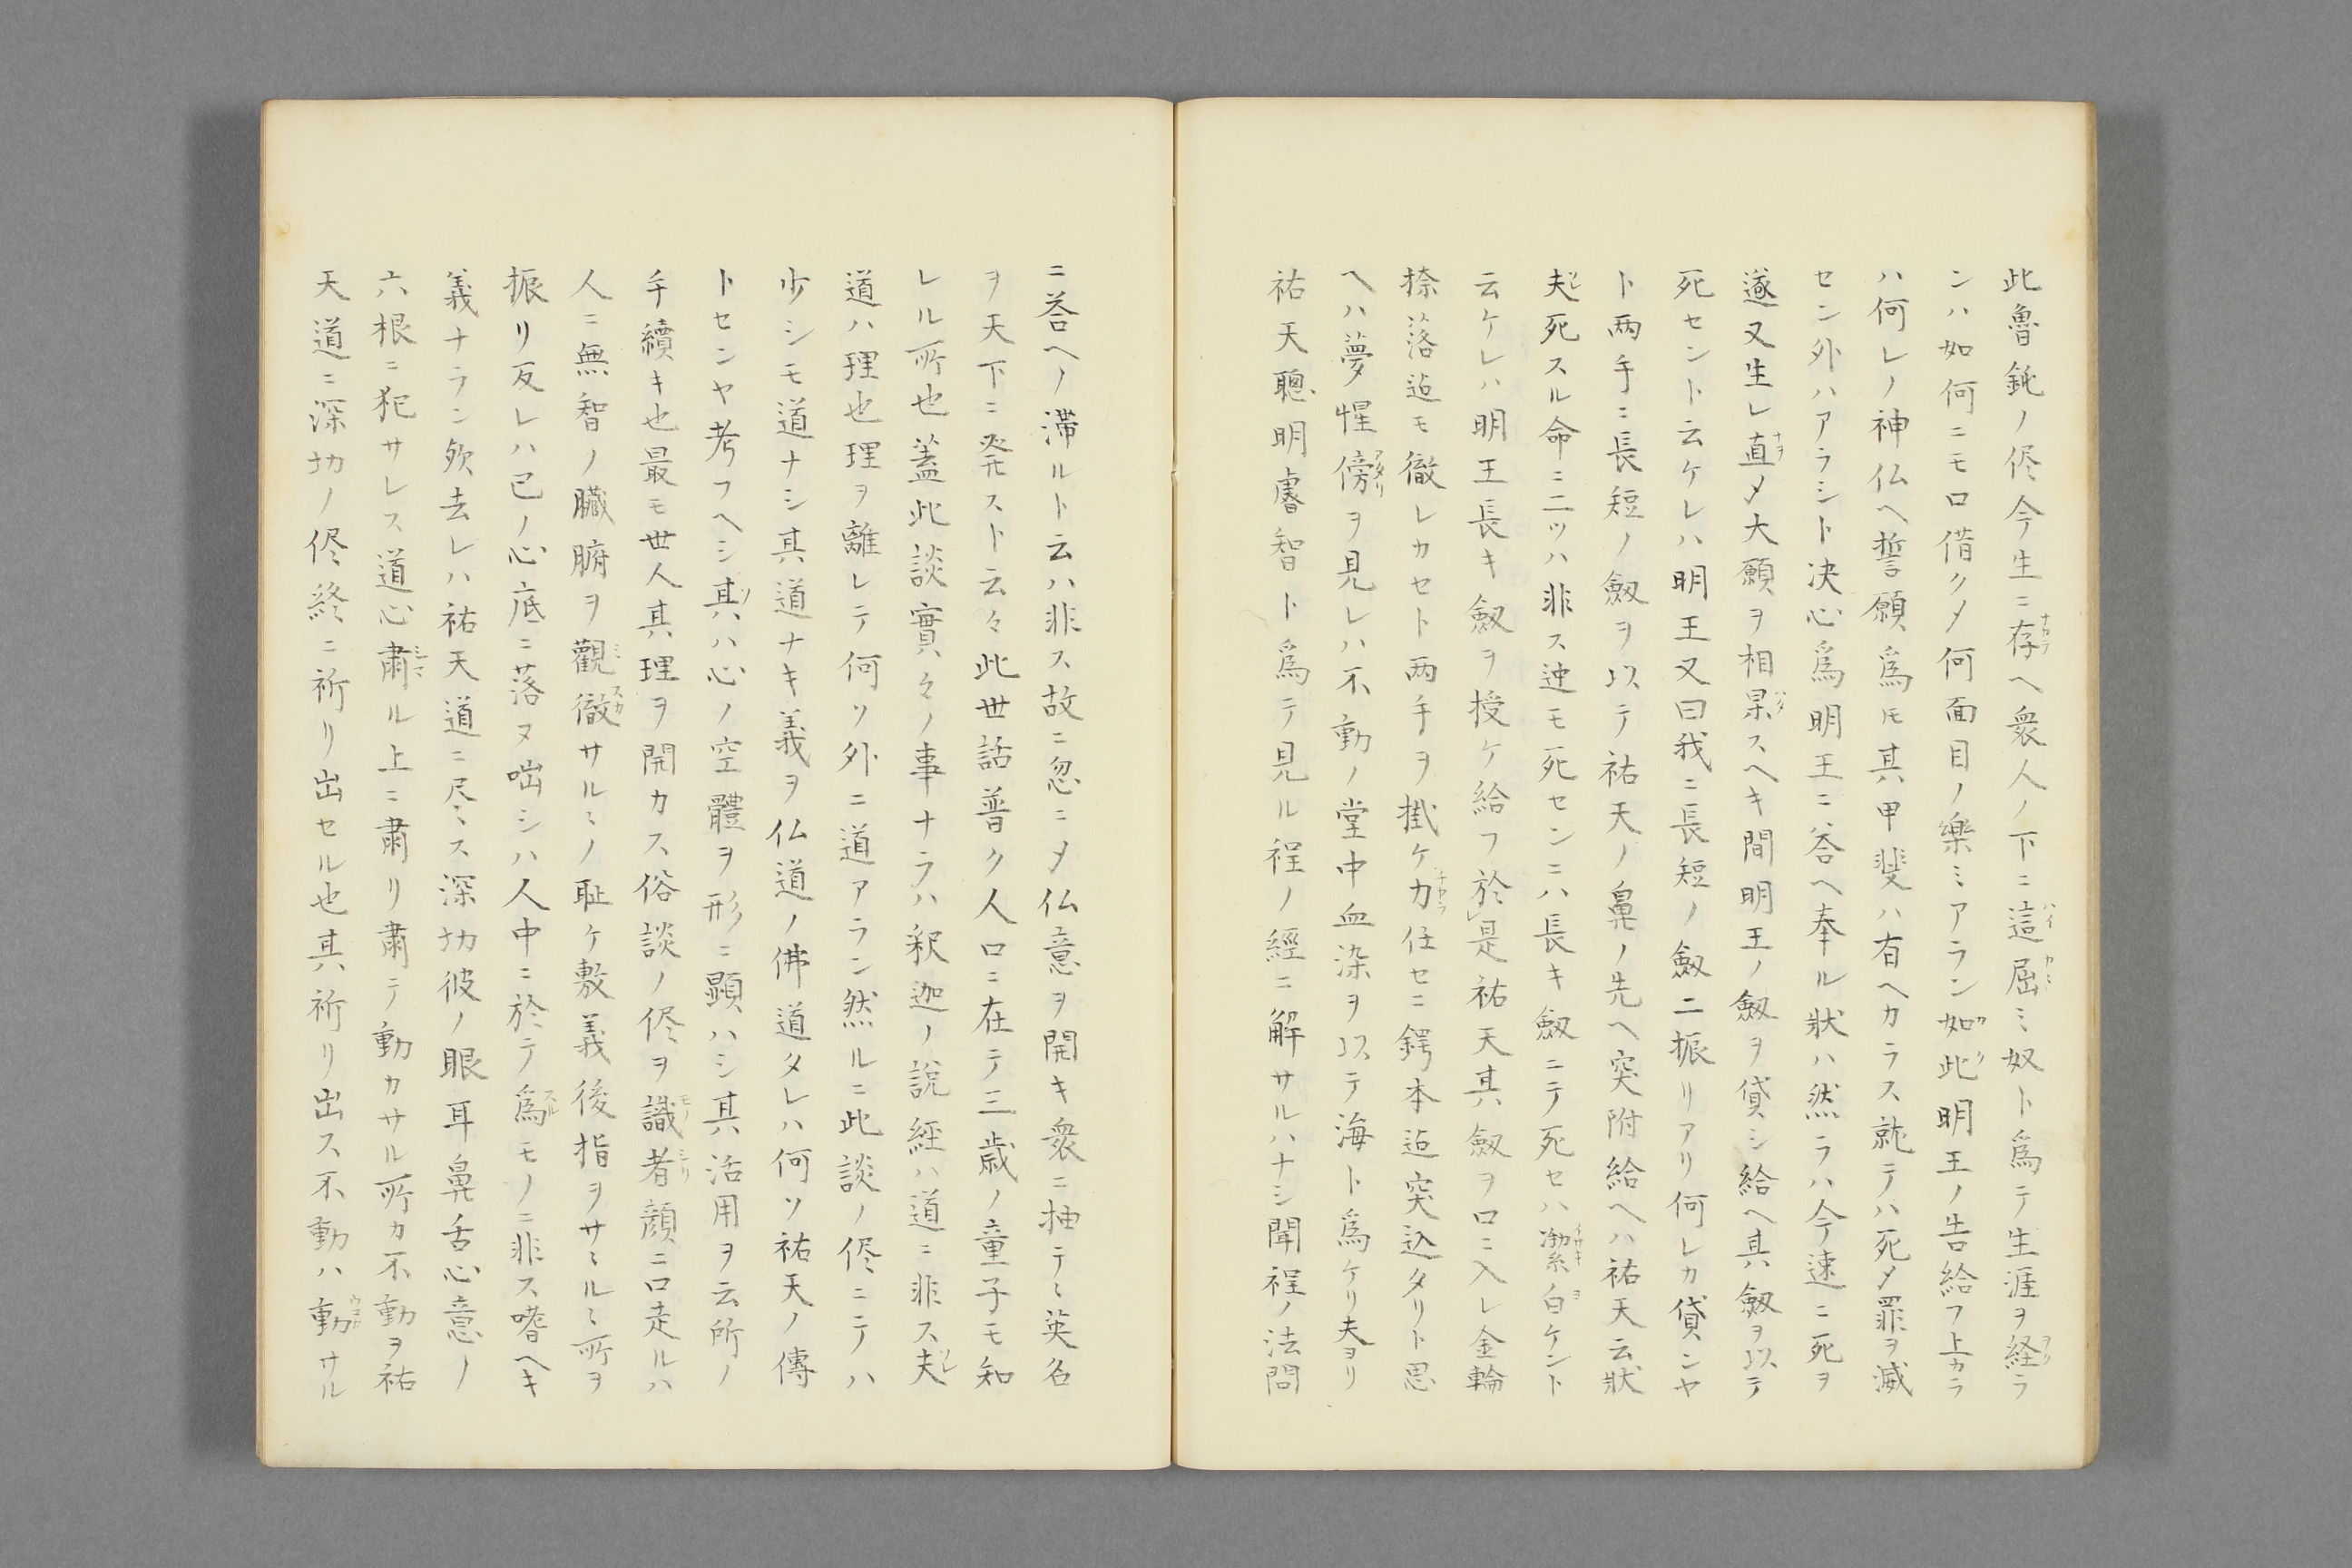 此魯鈍ノ侭今生ニ存ヘ衆人ノ下ニ這屈ミ奴ト爲テ生涯ヲ経ラ
ンハ如何ニモ口借クメ何面目ノ樂ミアラン如此明王ノ告給フ上カラ
ハ何レノ神仏ヘ誓願爲モ其甲斐ハ有ヘカラス就テハ死メ罪ヲ滅
セン外ハアラシト决心爲明王ニ答ヘ奉ル狀ハ然ラハ今速ニ死ヲ
遂又生レ直メ大願ヲ相果スヘキ間明王ノ劔ヲ貸シ給ヘ其劔ヲ以テ
死セント云ケレハ明王又曰我ニ長短ノ劔二振リアリ何レカ貸ンヤ
ト两手ニ長短ノ劔ヲ以テ祐天ノ鼻ノ先ヘ突附給ヘハ祐天云狀
夫死スル命ニ二ツハ非ス迚モ死センニハ長キ劔ニテ死セハ潔白ケント
云ケレハ明王長キ劔ヲ授ケ給フ於是祐天其劔ヲ口ニ入レ金輪
捺落迠モ徹レカセト两手ヲ掛ケ力任セニ鍔本迠突込タリト思
ヘハ夢惺傍ヲ見レハ不動ノ堂中血染ヲ以テ海ト爲ケリ夫ヨリ
祐天聰明睿智ト爲テ見ル程ノ經ニ解サルハナシ聞程ノ法問
ニ答ヘノ滞ルト云ハ非ス故ニ忽ニメ仏意ヲ開キ衆ニ抽テヽ英名
ヲ天下ニ発スト云々此世話普ク人口ニ在テ三歳ノ童子モ知
レル所也蓋此談實々ノ事ナラハ釈迦ノ說經ハ道ニ非ス夫
道ハ理也理ヲ離レテ何ソ外ニ道アラン然ルニ此談ノ侭ニテハ
少シモ道ナシ其道ナキ義ヲ仏道ノ佛道タレハ何ソ祐天ノ傳
トセンヤ考フヘシ其ハ心ノ空體ヲ形ニ顕ハシ其活用ヲ云所ノ
手續キ也最モ世人其理ヲ開カス俗談ノ侭ヲ識者顔ニ口走ルハ
人ニ無智ノ臓腑ヲ觀徹サルヽノ耻ケ敷義後指ヲサヽルヽ所ヲ
振リ反レハ己ノ心底ニ落ヌ咄シハ人中ニ於テ爲モノニ非ス嗜ヘキ
義ナラン欤去レハ祐天道ニ尽ヽス深功彼ノ眼耳鼻舌心意ノ
六根ニ犯サレス道心肅ル上ニ肅リ肅テ動カサル所カ不動ヲ祐
天道ニ深功ノ侭終ニ祈リ出セル也其祈リ出ス不動ハ動サル